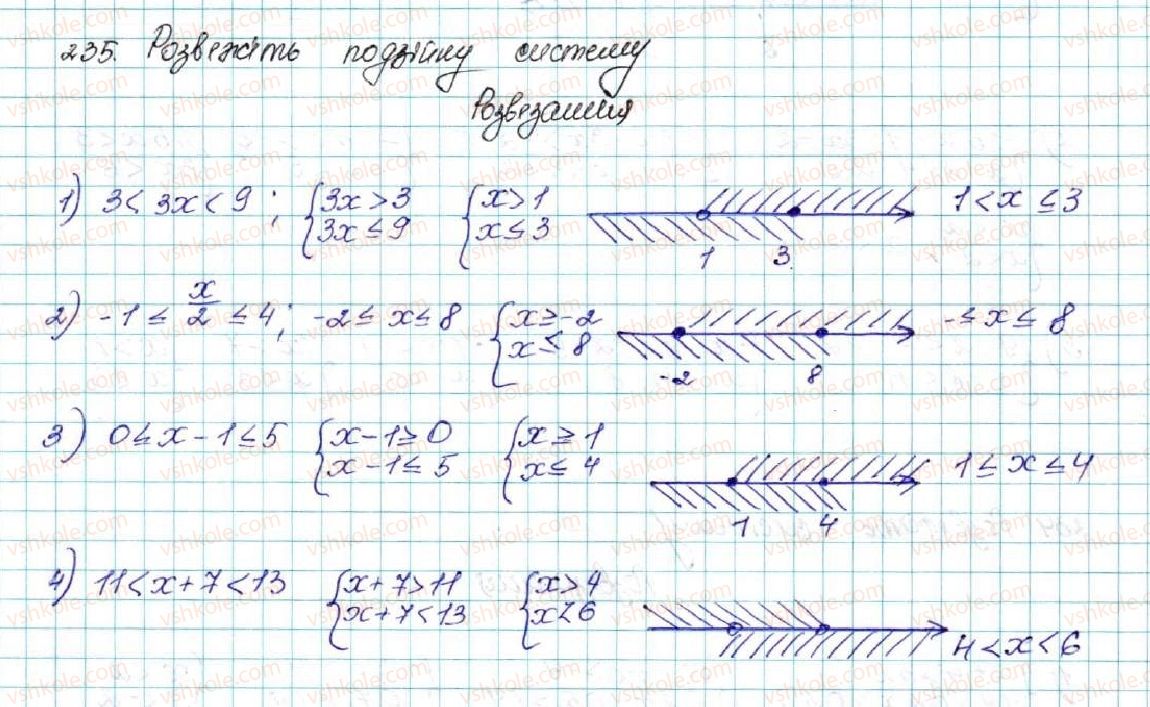 235. Розвежіть подвійну систему
Розвезання
1) 3 < 3x < 9 ; { 3x > 3 { x > 1 1 < x ≤ 3
3x ≤ 9 x ≤ 3
1 3
2) -1 ≤ x/2 ≤ 4 ; -2 ≤ x ≤ 8 { x ≥ -2 - ≤ x ≤ 8
x ≤ 8
-2 8
3) 0 ≤ x - 1 ≤ 5 { x - 1 ≥ 0 { x ≥ 1 1 ≤ x ≤ 4
x - 1 ≤ 5 x ≤ 4
1 4
4) 11 < x + 7 < 13 { x + 7 > 11 { x > 4
x + 7 < 13 x < 6
4 < x < 6
vshkole.com